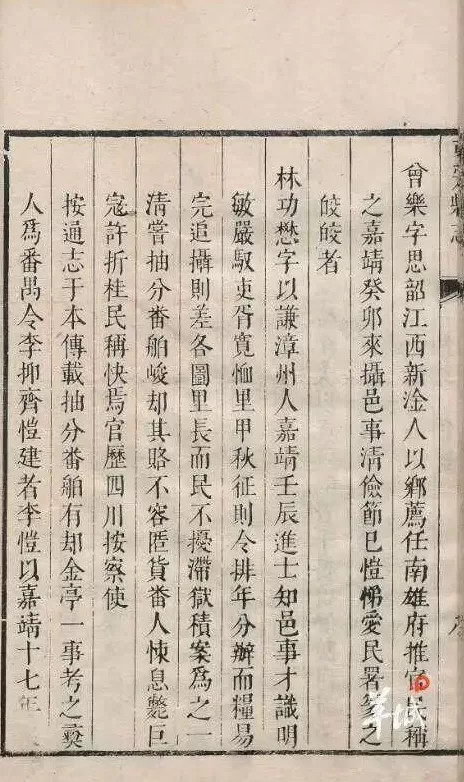 曾樂字思韶江西新淦人以鄉薦任南雄府推官稱
之嘉靖癸卯來攝邑事清儉節巳愷悌愛民署篆之
皎皎者
林功懋字以謙漳州人嘉靖壬辰進士知邑事才識明
敏嚴馭吏胥寛恤里甲秋征則令排年分辦而糧易
完追攝則差各圖里長而民不擾滯獄積案爲之一
清嘗抽分番舶峻却其賂不容匿貨番人悚息斃巨
寇許折桂民稱快焉官歷四川按察使
按通志于本傳載抽分番舶有却金亭一事考之
人爲番禺令李抑齊愷建者李愷以嘉靖十七年
縣志
羊城